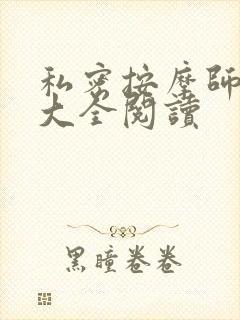 私密按摩師
大全閱讀
黑瞳卷卷